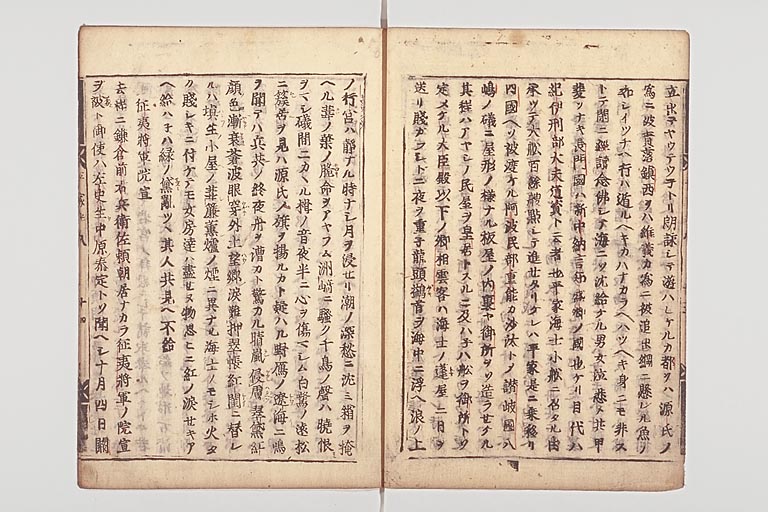 立出テヤウテウ子トリ朗詠シテ遊ハレケルカ都ヲハ源氏ノ
為ニ被責落鎮西ヲハ維義カ為ニ被追出網ニ懸レル魚ノ
如シイツチヘ行ハ遁ルヘキカハナカラヘハツヘキ身ニモ非ス
トテ閑ニ経讀念佛シテ海ニソ沈給ケル男女泣悲メ共甲
斐ソナキ長門國ハ新中納言知盛卿ノ國也ケリ目代ハ
紀伊刑部大夫道資ト云者也平家海士小船ニ召タル由
承ツテ大船百餘艘點シテ進セタリケレハ平家是ニ乗移リ
四國ヘソ被渡ケル阿波民部重能カ沙汰トメ讃岐國八
嶋ノ磯ニ屋形ノ様ナル板屋ノ内裏ヤ御所ヲソ造ラセケル
其程ハアヤシノ民屋ヲ皇居トスルニ及ハ子ハ船ヲ御所トソ
定メケル大臣殿以下ノ卿相雲客ハ海士ノ蓬屋ニ日ヲ
送リ賤カフシトニ夜ヲ重子龍頭鷁首ヲ海中ニ浮ヘ浪ノ上
ノ行宮ハ静ナル時ナシ月ヲ浸セリ潮ノ深愁ニ沈ミ霜ヲ掩
ヘル葦ノ葉ノ脆命ヲアヤフム洲崎ニ騒ク千鳥ノ聲ハ暁恨
ヲマシ礒間ニカヽル梶ノ音夜半ニ心ヲ傷マシム白鷺ノ遠松
ニ簇居ヲ見ハ源氏ノ旗ヲ揚ルカト疑ハル野鴈ノ遼海ニ鳴
ヲ聞テハ兵共ノ終夜舟ヲ漕カト驚カル晴嵐侵膚翠黛紅
顔色漸衰蒼波眼穿外土望郷涙難抑翠帳紅閨ニ替レ
ルハ填生小屋ノ葦簾薫爐ノ煙ニ異ナル海士ノモシホ火タ
ク賤シキニ付ケテモ女房達ハ盡セヌ物思ヒニ紅ノ涙セキア
ヘ給ハ子ハ緑ノ黛亂ツヽ其人共見ヘ不給
征夷将軍院宣
去程ニ鎌倉前右兵衛佐頼朝居ナカラ征夷将軍ノ院宣
ヲ被下御使ハ左史生中原泰定トソ聞ヘシ十月四日關